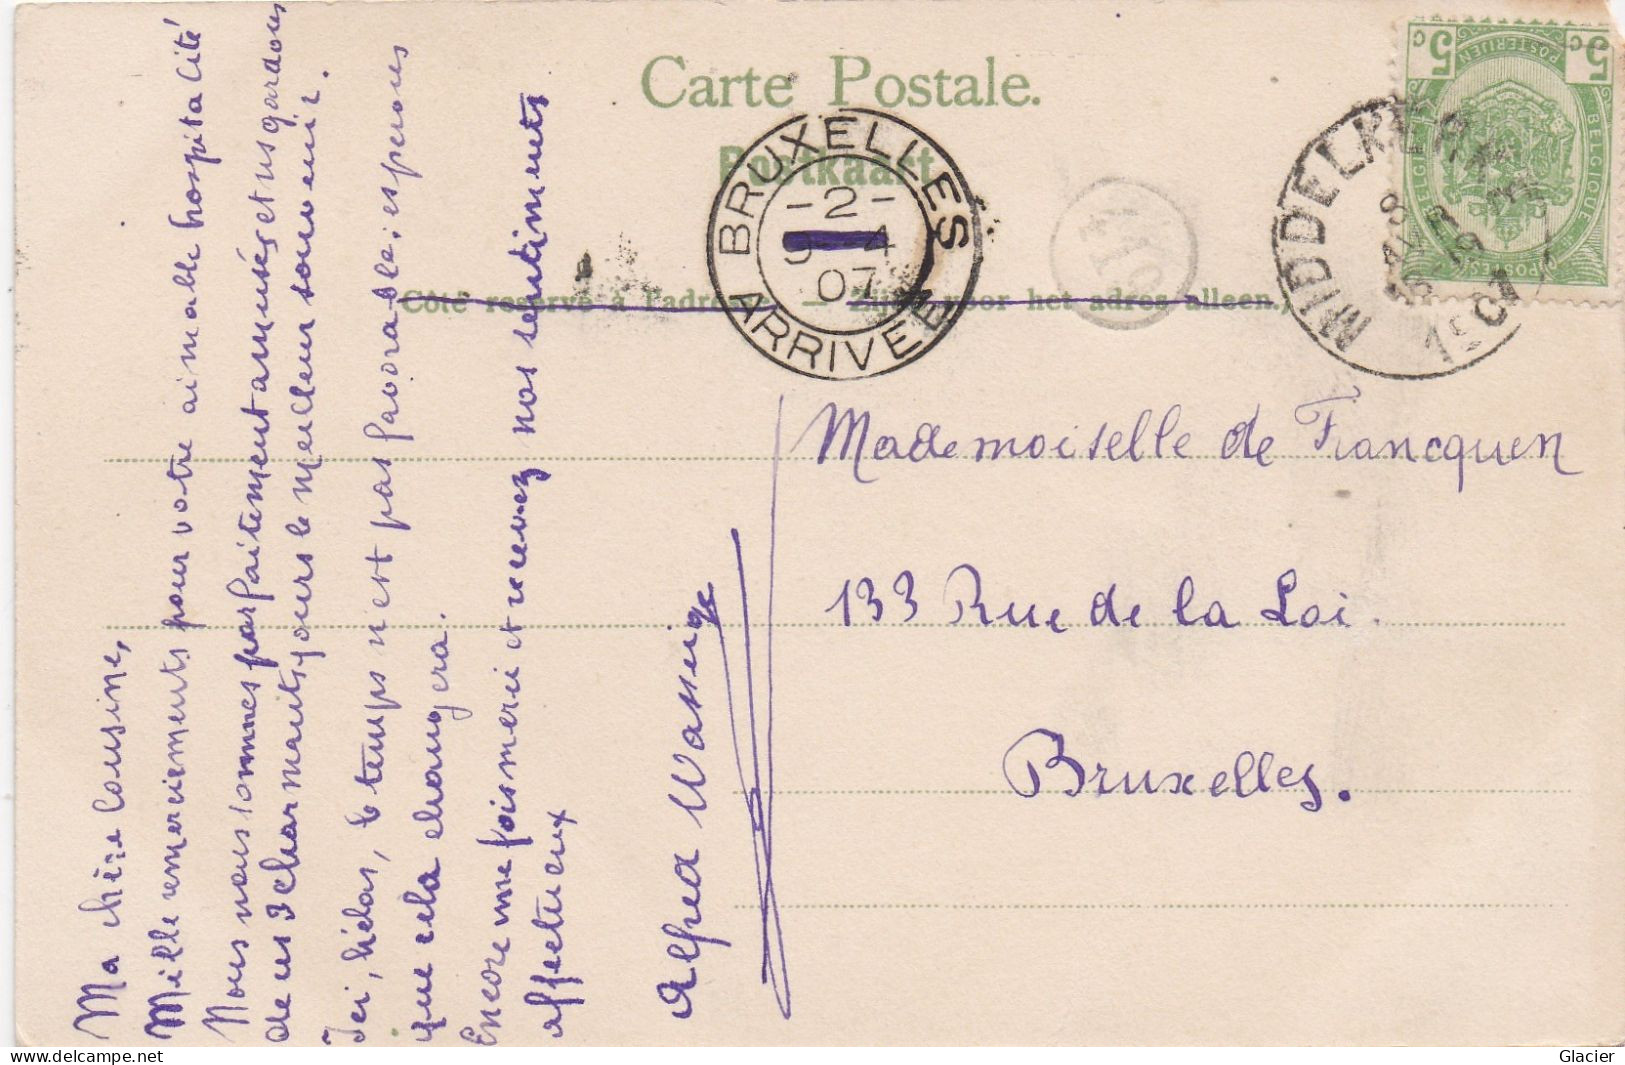 Carte Postale.
Postkaart
(Côté réservé à l'adresse. — Zijde voor het adres alleen.)
BRUXELLES
-2-
9-4
07
ARRIVEE
MIDDELKERKE
8
AVR
1907
5 c
5 c
POSTERIJEN
BELGIË
BELGIQUE
Ma chère Cousine,
Mille remerciements pour votre aimable hospitalité
Nous nous sommes parfaitement amusés, et ns gardons
de ces 3 charmants jours le meilleur souvenir.
Ici, hélas, le temps n'est pas favorable; espérons
que cela changera.
Encore une fois merci et recevez nos sentiments
affectueux
Mademoiselle de Francquen
133 Rue de la Loi.
Bruxelles.
Glacier